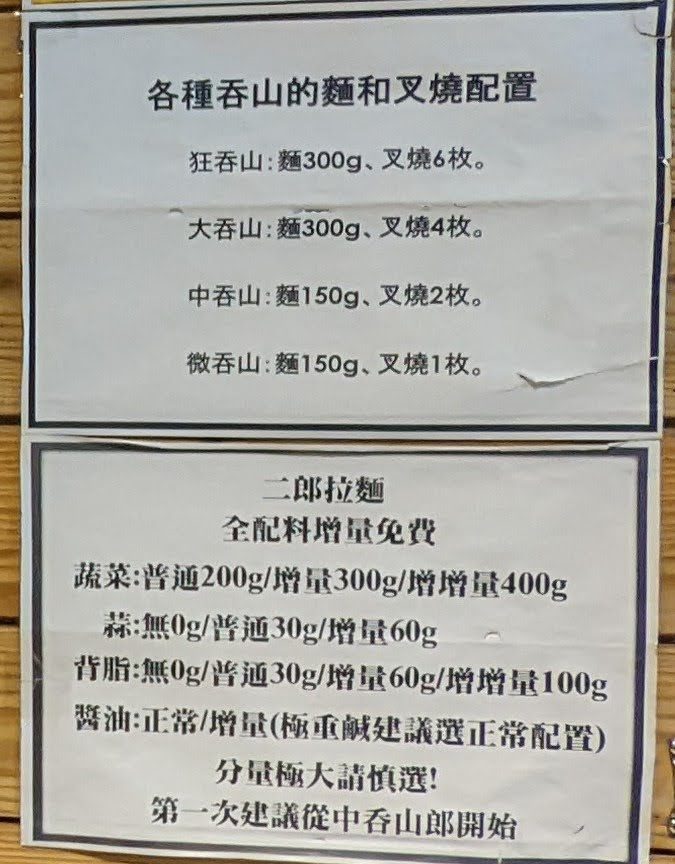 各種吞山的麵和叉燒配置
狂吞山:麵300g、叉燒6枚。
大吞山:麵300g、叉燒4枚。
中吞山:麵150g、叉燒2枚。
微吞山:麵150g、叉燒1枚。
二郎拉麵
全配料增量免費
蔬菜:普通200g/增量300g/增增量400g
蒜:無0g/普通30g/增量60g
背脂:無0g/普通30g/增量60g/增增量100g
醬油:正常/增量(極重鹹建議選正常配置)
分量極大請慎選!
第一次建議從中吞山郎開始